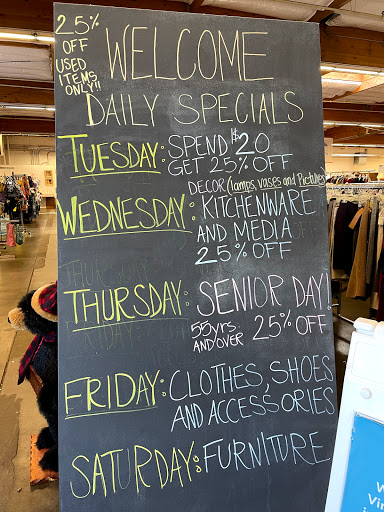 25%
OFF
USED
ITEMS
ONLY!!
WELCOME
DAILY SPECIALS
TUESDAY: SPEND $20
GET 25% OFF
DECOR (lamps, vases and Pictures)
WEDNESDAY: KITCHENWARE
AND MEDIA
25% OFF
THURSDAY: SENIOR DAY!
55yrs AND OVER 25% OFF
FRIDAY: CLOTHES, SHOES
AND ACCESSORIES
SATURDAY: FURNITURE